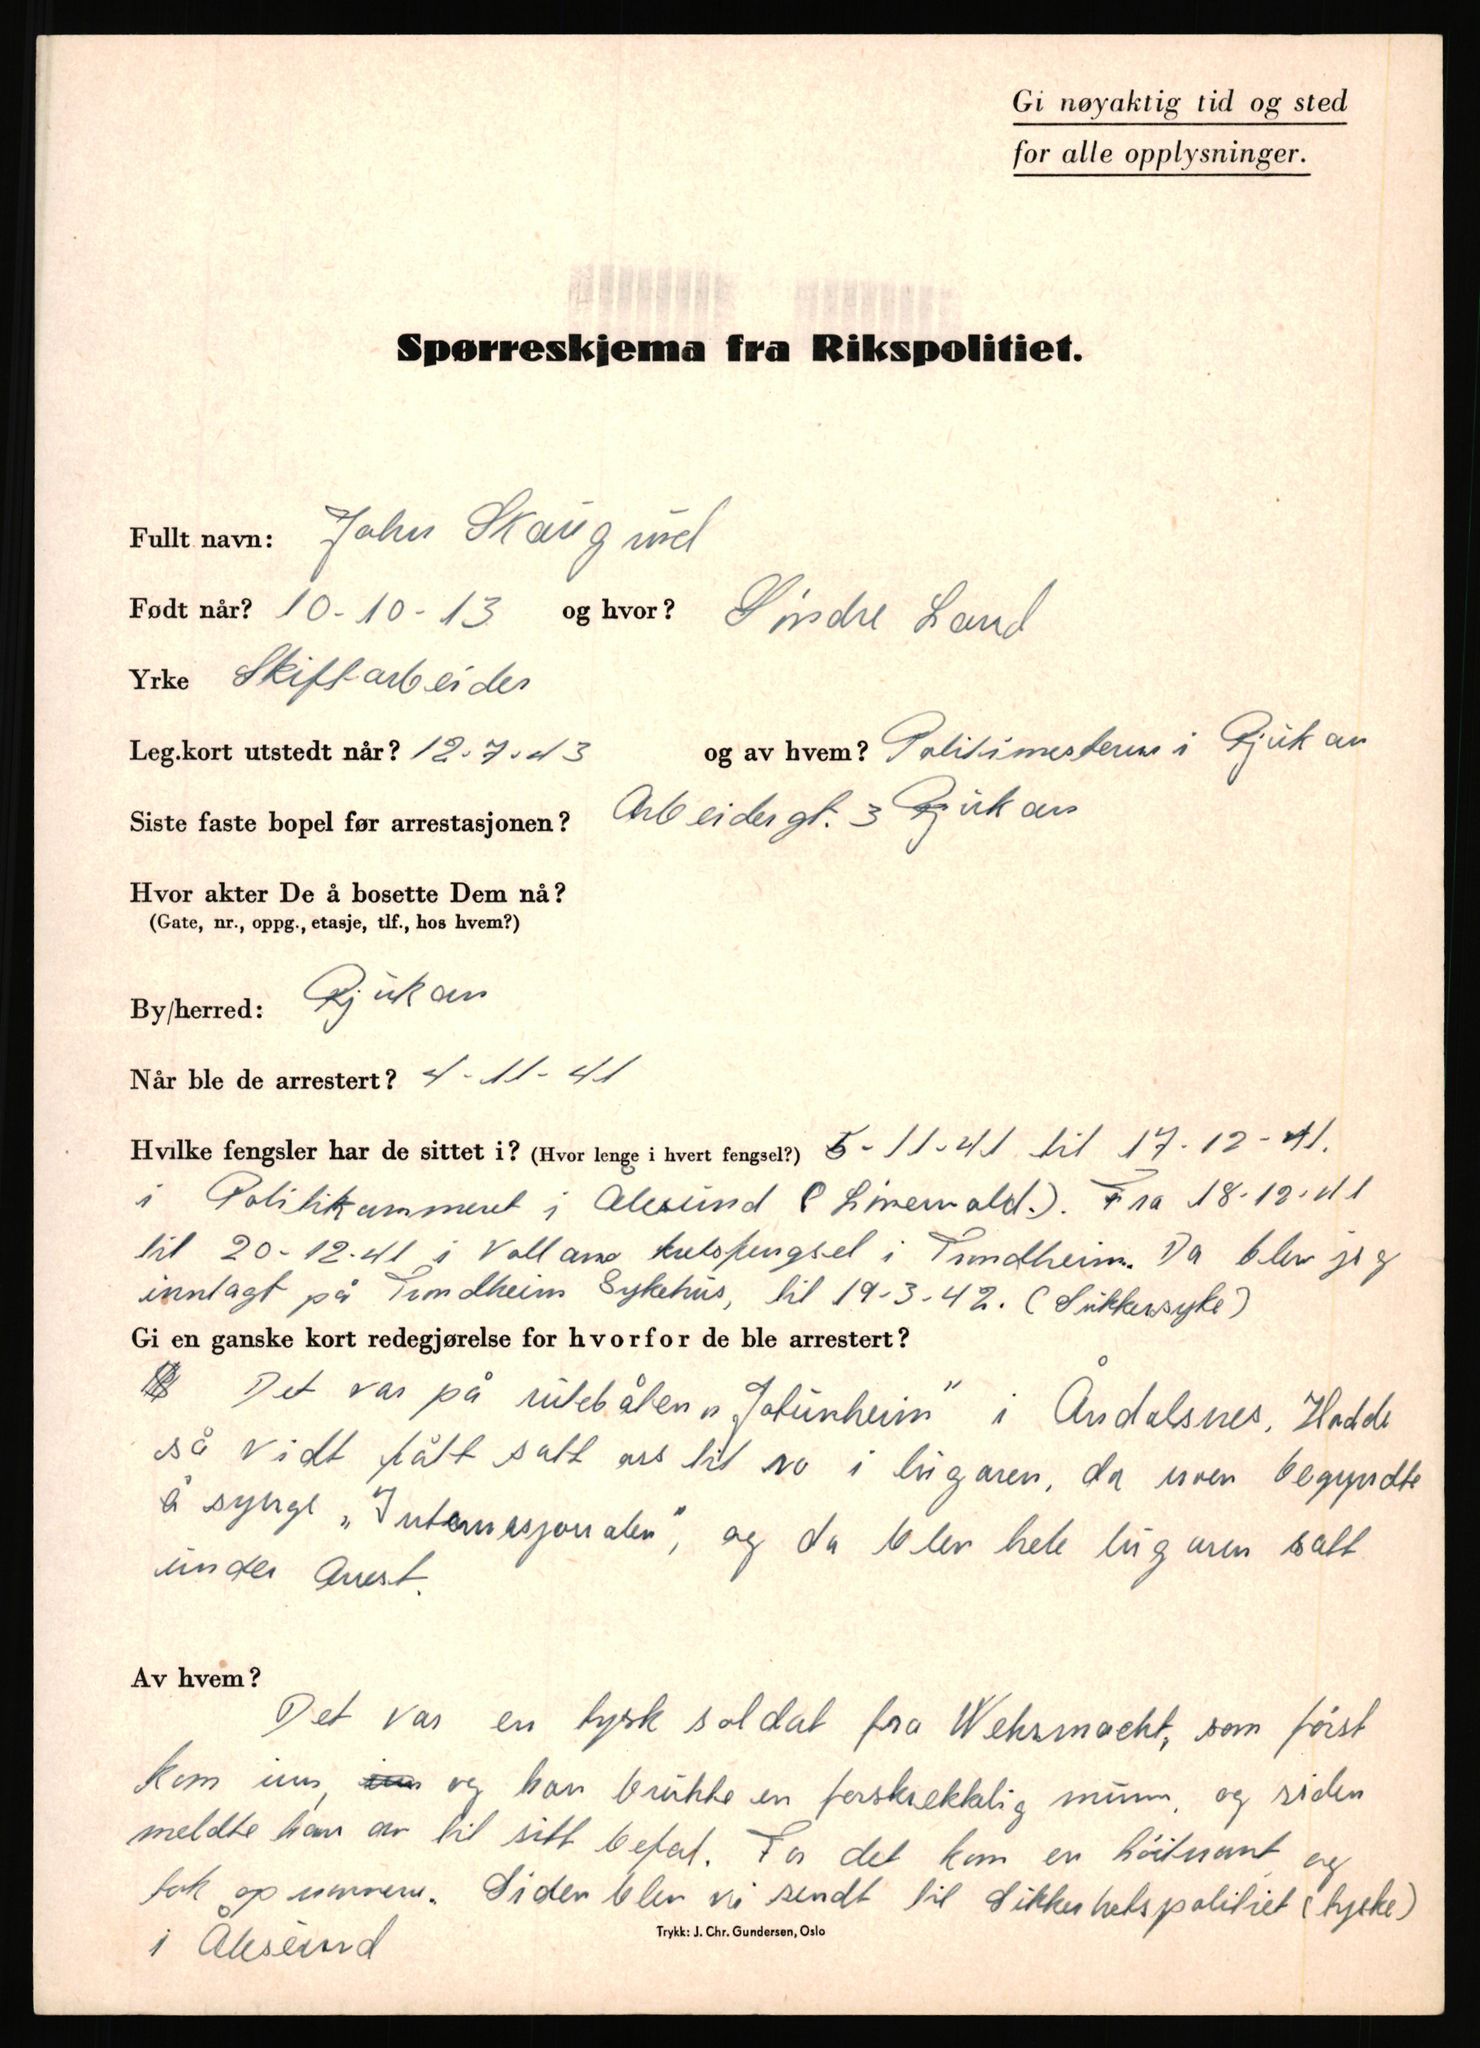 Gi nøyaktig tid og sted
for alle opplysninger.
Spørreskjema fra Rikspolitiet.
Fullt navn: John Skaugrud
Født når? 10-10-13 og hvor? Söndre Land
Yrke Skiftarbeider
Leg.kort utstedt når? 12-7-43 og av hvem? Politimesteren i Rjukan
Siste faste bopel før arrestasjonen? Arbeidergt. 3 Rjukan
Hvor akter De å bosette Dem nå?
(Gate, nr., oppg., etasje, tlf., hos hvem?)
By/herred: Rjukan
Når ble de arrestert? 4-11-41
Hvilke fengsler har de sittet i? (Hvor lenge i hvert fengsel?) 5-11-41 til 17-12-41.
i Politikammeret i Ålesund ( ). Fra 18-12-41
til 20-12-41 i Vollan kretsfengsel i Trondheim. Da blev jeg
innlagt på Trondheim Sykehus, til 19-3-42. (Sukkersyke)
Gi en ganske kort redegjørelse for hvorfor de ble arrestert?
Det var på rutebåten „Jotunheim" i Åndalsnes. Hadde
så vidt fått satt oss til ro i lugaren, da noen begyndte
å synge „Internasjonalen", og da blev hele lugaren satt
under Arrest.
Av hvem?
Det var en tysk soldat fra Wehrmacht, som först
kom inn, og han brukte en forskrekkelig munn, og siden
meldte han av til sitt befal. For det kom en löitnant og
tok op navnene. Siden blev vi sendt til Sikkerhetspolitiet (tyske)
i Ålesund
Trykk: J. Chr. Gundersen, Oslo